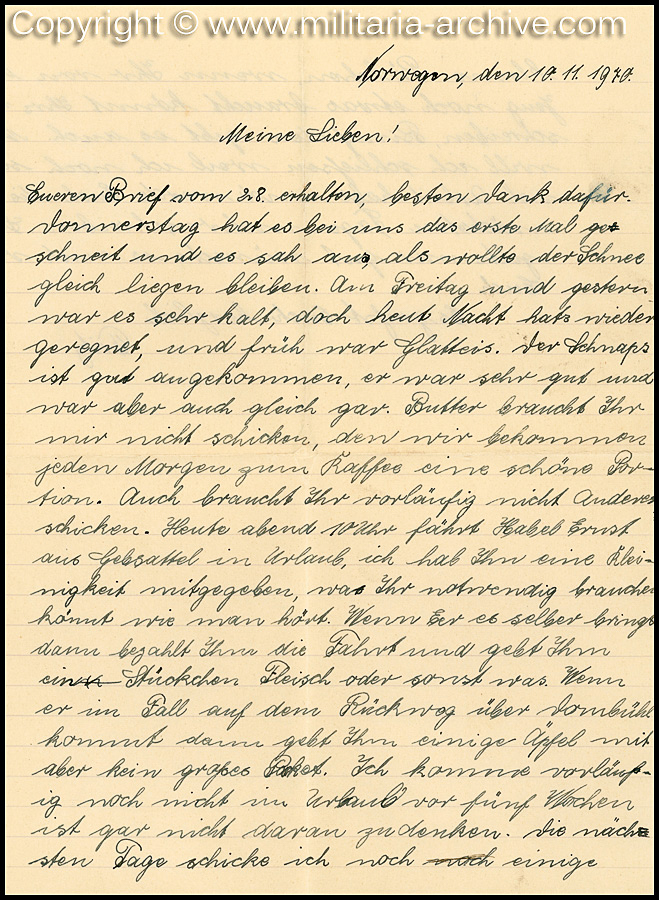 Copyright © www.militaria-archive.com
Norwegen, den 10.11.1940.
Meine Lieben!
Eueren Brief vom 28. erhalten, besten Dank dafür.
Donnerstag hat es bei uns das erste Mal ge-
schneit und es sah aus, als wollte der Schnee
gleich liegen bleiben. Am Freitag und gestern
war es sehr kalt, doch heut Nacht hats wieder
geregnet, und früh war Glatteis. Der Schnaps
ist gut angekommen, er war sehr gut und
war aber auch gleich gar. Butter braucht Ihr
mir nicht schicken, den wir bekommen
jeden Morgen zum Kaffee eine schöne Por-
tion. Auch braucht Ihr vorläufig nicht anderes
schicken. Heute abend 10 Uhr fährt Habel Ernst
aus Gebsattel in Urlaub, ich hab Ihm eine Klei-
nigkeit mitgegeben, was Ihr notwendig brauchen
könnt wie man hört. Wenn Er es selber bringt
dann bezahlt Ihm die Fahrt und gebt Ihm
ein Stückchen Fleisch oder sonst was. Wenn
er im Fall auf dem Rückweg über Dombühl
kommt dann gebt Ihm einige Äpfel mit
aber kein großes Paket. Ich komme vorläuf-
ig noch nicht in Urlaub vor fünf Wochen
ist gar nicht daran zu denken. Die näch-
sten Tage schicke ich noch einige